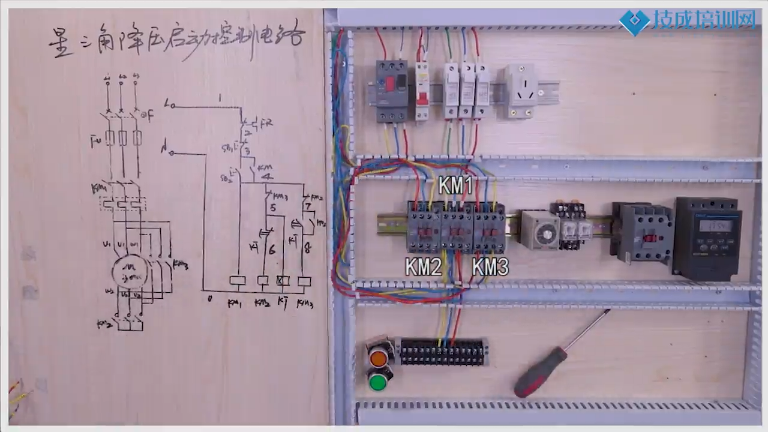 技成培训网
星三角降压启动控制电路
KM1
KM2
KM3
L1
L2
L3
QF
KM1
KM3
KM2
L
N
1
FR
2
SB1
3
SB2
KM
4
KM3
KM2
5
7
KT
KT
6
8
0
KM1
KM2
KT
KM3